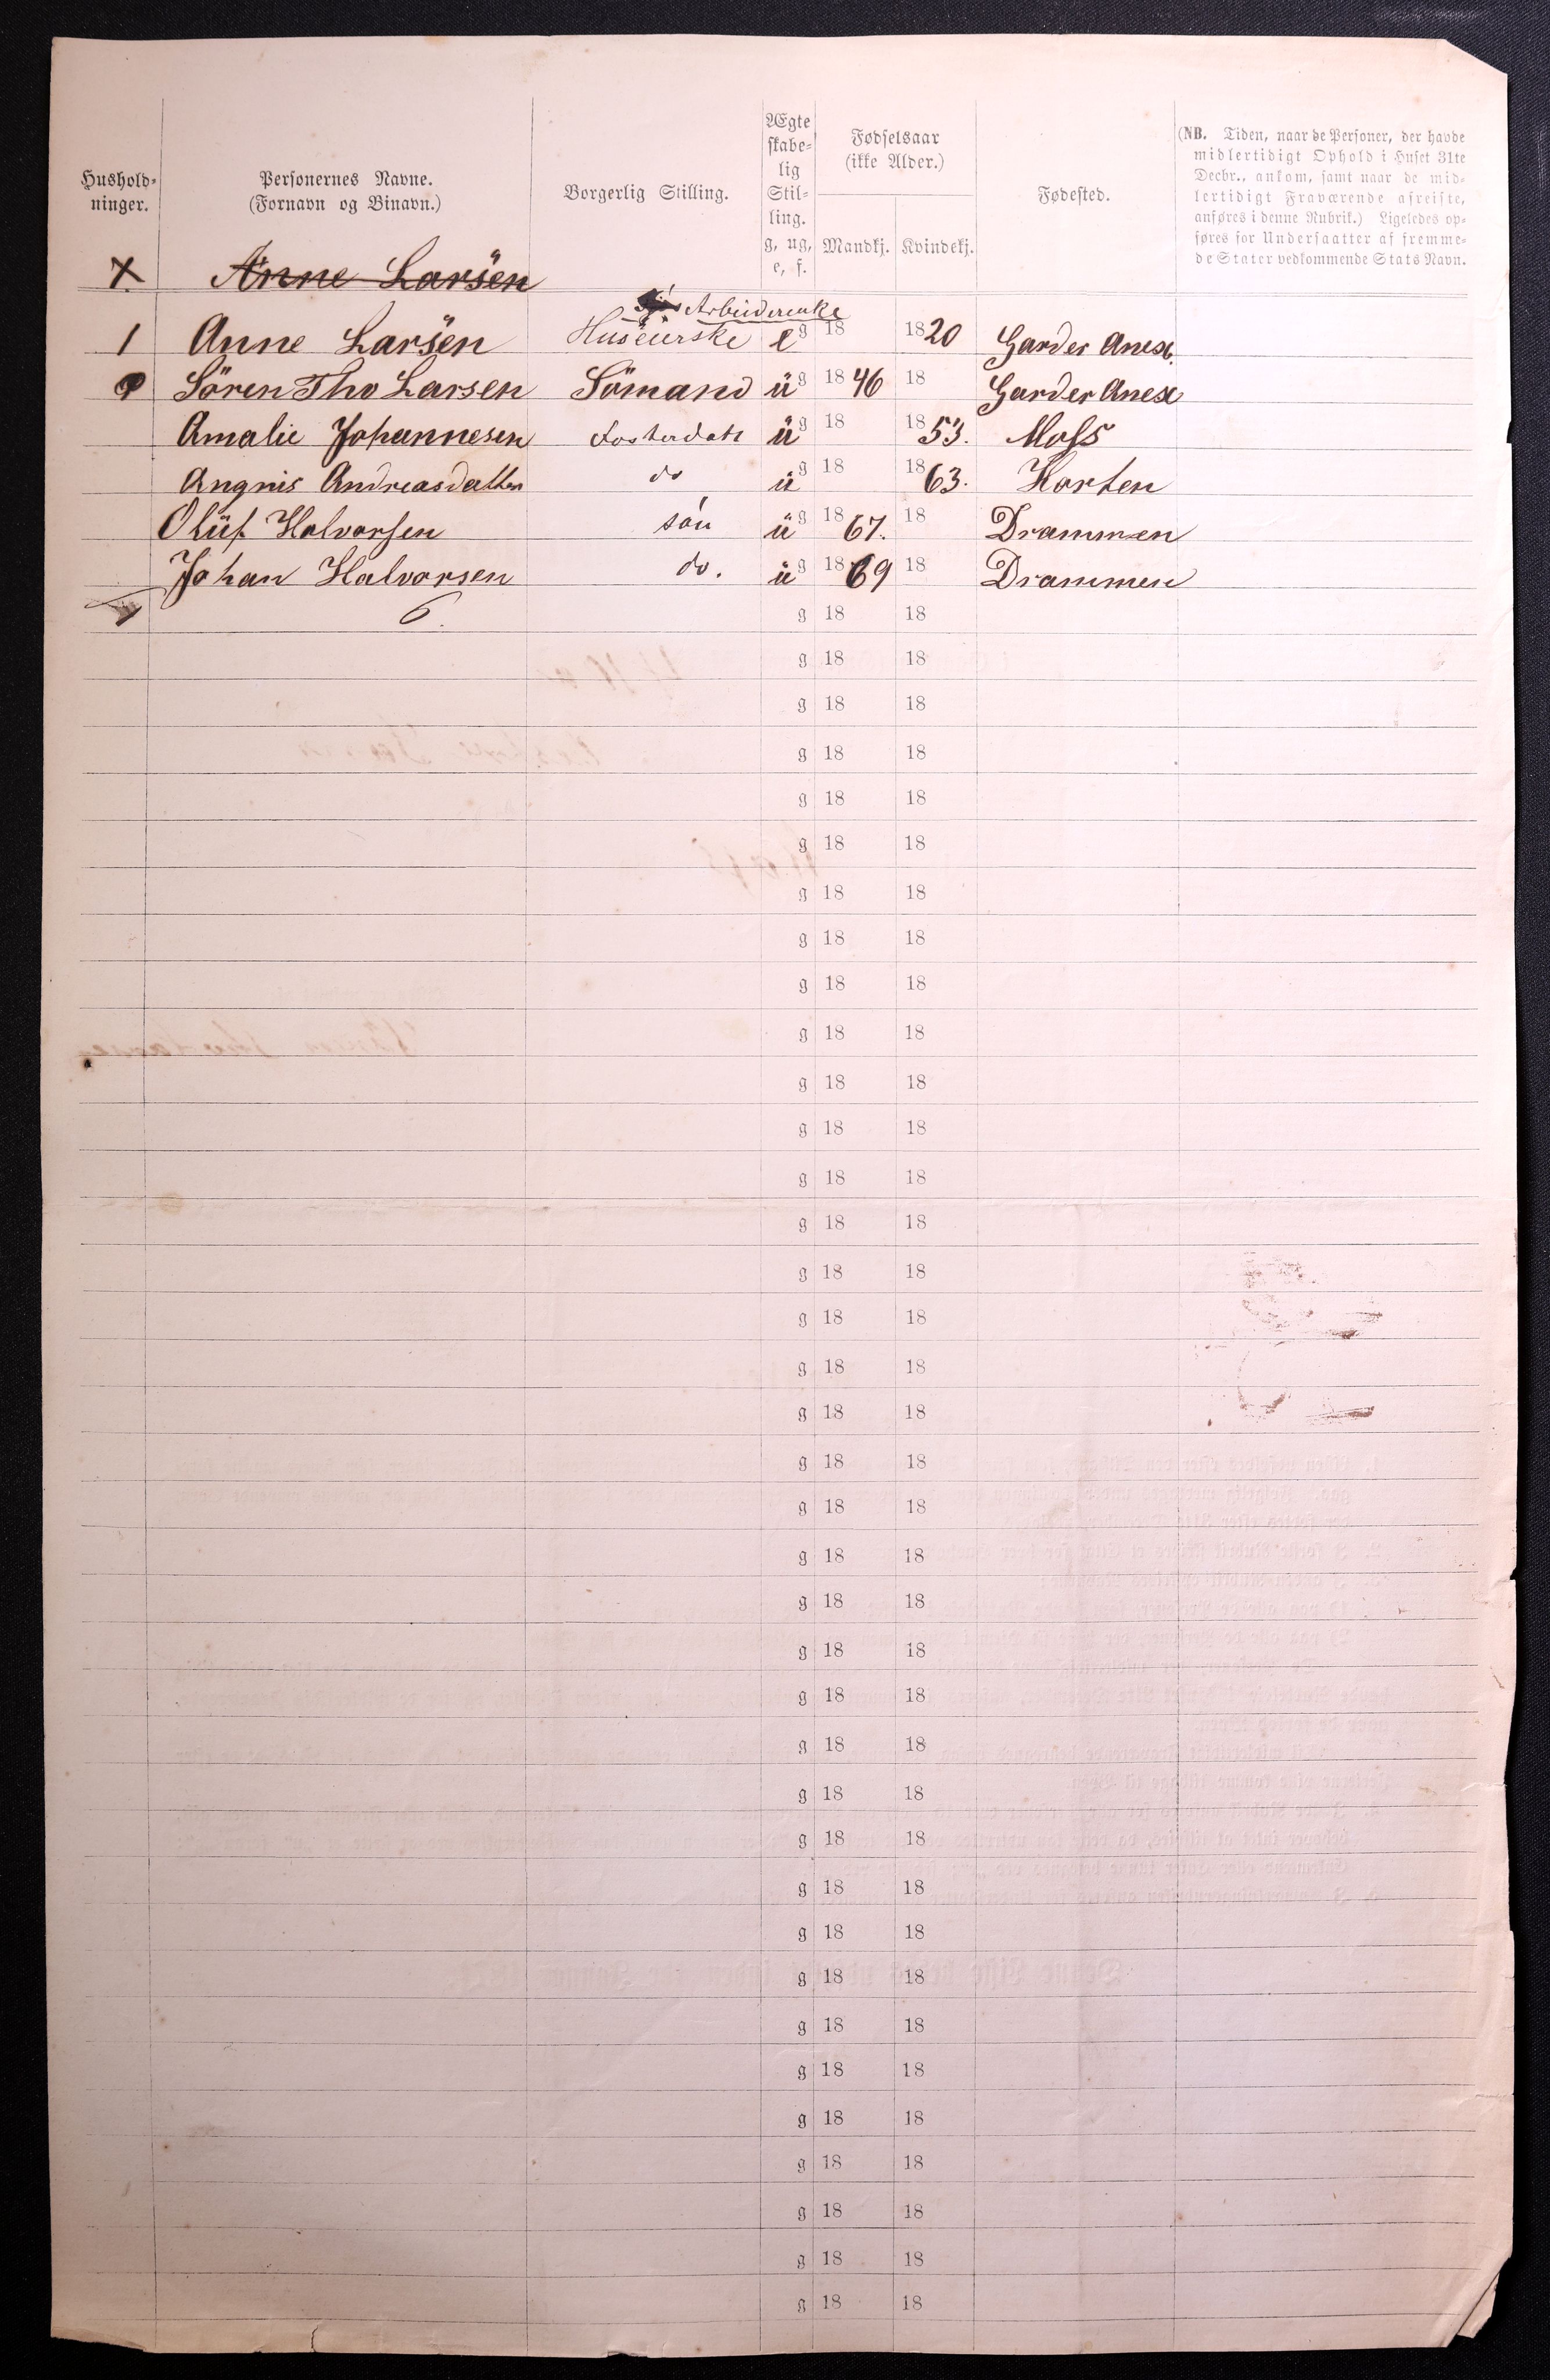 Hushold-
ninger.
Personernes Navne.
(Fornavn og Binavn.)
Borgerlig Stilling.
Ægte
skabe-
lig
Stil-
ling.
g, ug,
e, f.
Fødselsaar
(ikke Alder.)
Mandkj. Kvindekj.
Fødested.
(NB. Tiden, naar de Personer, der havde
midlertidigt Ophold i Huset 31te
Decbr., ankom, samt naar de mid-
lertidigt Fraværende afreiste,
anføres i denne Rubrik.) Ligeledes op-
føres for Undersaatter af fremme-
de Stater vedkommende Stats Navn.
X Anne Larsen
Arbeiderenke
1 Anne Larsen Huseierske e g 18 1820 Garder Anex.
Sören Tho Larsen Sömand ü g 1846 18 Garder Anex
Amalie Johannesen Fosterdatt ü g 18 1853. Moss
Angnis Andreasdatter do ü g 18 1863. Horten
Olüf Halvorsen sön ü g 1867. 18 Drammen
Johan Halvorsen do. ü g 1869 18 Drammen
6. g 18 18
g 18 18
g 18 18
g 18 18
g 18 18
g 18 18
g 18 18
g 18 18
g 18 18
g 18 18
g 18 18
g 18 18
g 18 18
g 18 18
g 18 18
g 18 18
g 18 18
g 18 18
g 18 18
g 18 18
g 18 18
g 18 18
g 18 18
g 18 18
g 18 18
g 18 18
g 18 18
g 18 18
g 18 18
g 18 18
g 18 18
g 18 18
g 18 18
g 18 18
g 18 18
g 18 18
g 18 18